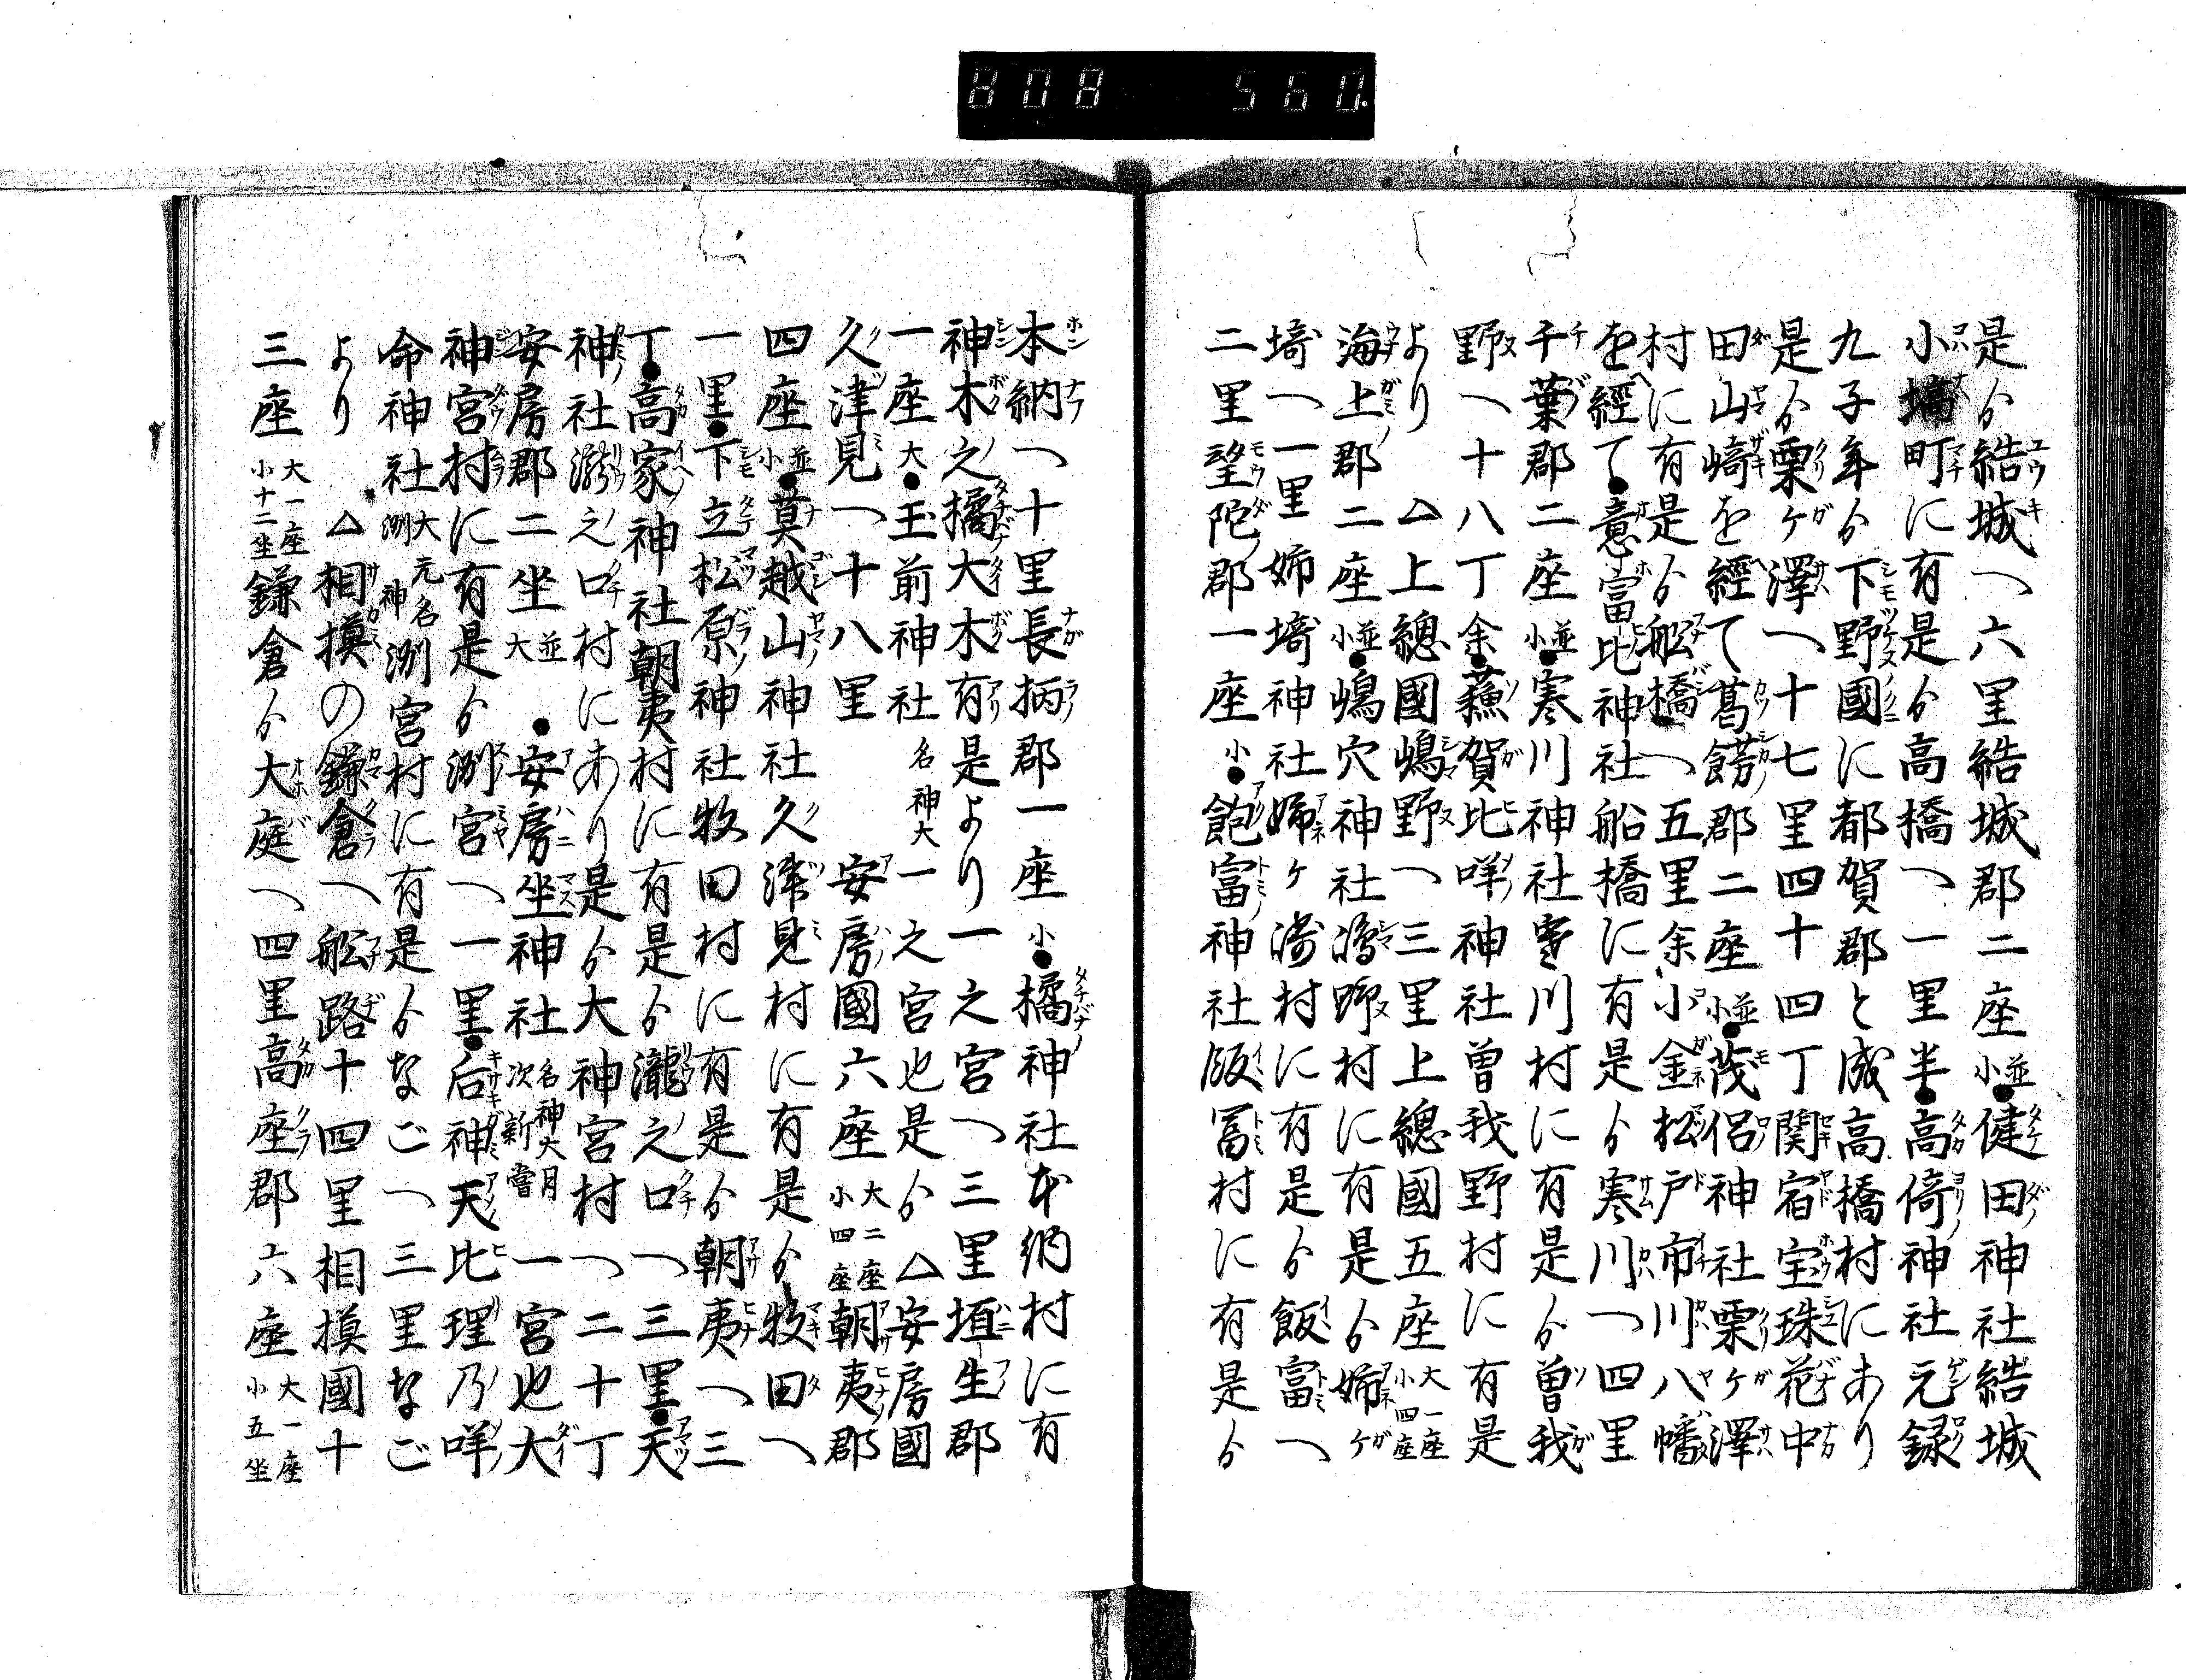 808 560.
是ゟ結城へ六里結城郡二座並小●健田神社結城
小塙町に有是ゟ高橋へ一里半●高倚神社元録
九子年ゟ下野國に都賀郡と成高橋村にあり
是ゟ栗ケ澤へ十七里四十四丁関宿宝珠花中
田山﨑を經て葛餝郡二座並小●茂侶神社栗ケ澤
村に有是ゟ舩橋へ五里余小金松戸市川八幡
を經て●意富比神社船橋に有是ゟ寒川へ四里
千葉郡二座並小●寒川神社寒川村に有是ゟ曽我
野へ十八丁余●蘓賀比咩神社曽我野村に有是
より △上總國嶋野へ三里上總國五座大一座小四座
海上郡二座並小●嶋穴神社嶋野村に有是ゟ姉ケ
埼へ一里姉埼神社姉ケ濤村に有是ゟ飯富へ
二里望陀郡一座小●飽富神社飯冨村に有是ゟ
本納へ十里長柄郡一座小●橘神社本納村に有
神木之橘大木有是より一之宮へ三里埴生郡
一座大●玉前神社名神大一之宮也是ゟ△安房國
久津見へ十八里 安房國六座大二座小四座朝夷郡
四座並小●莫越山神社久津見村に有是ゟ牧田へ
一里●下立松原神社牧田村に有是ゟ朝夷へ三
丁●高家神社朝夷村に有是ゟ瀧之口へ三里●天
神社瀧之口村にあり是ゟ大神宮村へ二十丁
安房郡二坐並大 ●安房坐神社名神大月次新嘗 一宮也大
神宮村に有是ゟ洲宮へ一里●后神天比理乃咩
命神社大元名洲神洲宮村に有是ゟなごへ三里なご
より △相摸の鎌倉へ舩路十四里相摸國十
三座大一座小十二坐鎌倉ゟ大庭へ四里高座郡六座大一座小五坐